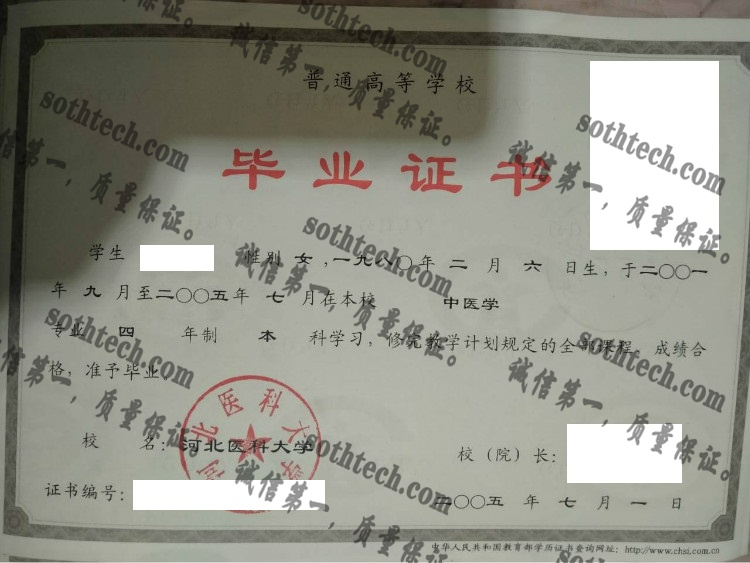 普通高等学校
毕业证书
学生 性别 女 ,一九八〇年 二 月 六 日生，于二〇〇一
年 九 月至二〇〇五年 七 月在本校 中医学
专业 四 年制 本 科学习，修完教学计划规定的全部课程，成绩合
格，准予毕业。
河北医科大学
校 名：河北医科大学
校（院）长：
证书编号：
二〇〇五 年 七 月 一 日
中华人民共和国教育部学历证书查询网址：http://www.chsi.com.cn
sothtech.com
诚信第一，质量保证。
sothtech.com
诚信第一，质量保证。
sothtech.com
诚信第一，质量保证。
sothtech.com
诚信第一，质量保证。
sothtech.com
诚信第一，质量保证。
sothtech.com
诚信第一，质量保证。
sothtech.com
诚信第一，质量保证。
sothtech.com